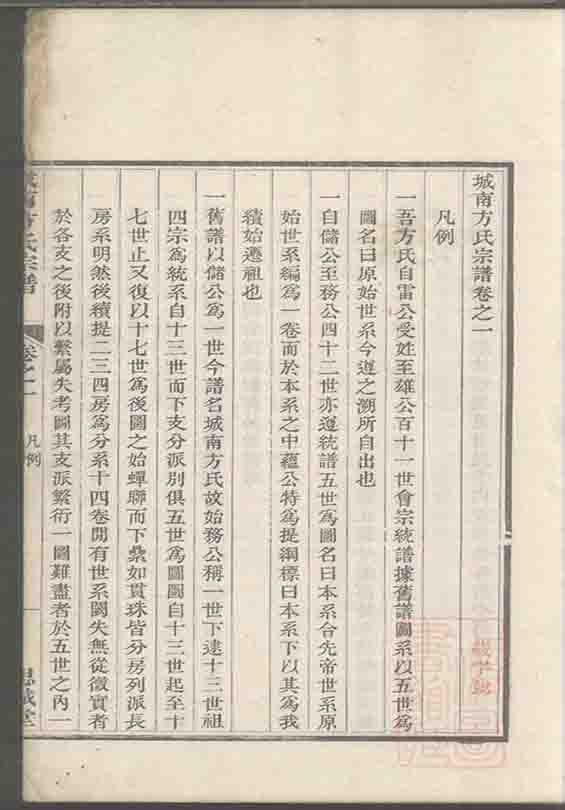 城南方氏宗譜卷之一
凡例
一吾方氏自雷公受姓至雄公百十一世會宗統譜據舊譜圖系以五世為
圖名曰原始世系今遵之溯所自出也
一自儲公至務公四十二世亦遵統譜五世為圖名曰本系合先帝世系原
始世系編為一卷而於本系之中蘊公特為提綱標曰本系下以其為我
續始遷祖也
一舊譜以儲公為一世今譜名城南方氏故始務公稱一世下逮十三世祖
四宗為統系自十三世而下支分派別俱五世為圖圖自十三世起至十
七世止又復以十七世為後圖之始蟬聯而下纍如貫珠皆分房列派長
房系明然後續提二三四房為分系十四卷閒有世系闕失無從徵實者
於各支之後附以繫屬失考圖其支派繁衍一圖難盡者於五世之內一
南方氏宗譜
卷之一
凡例
思誠堂